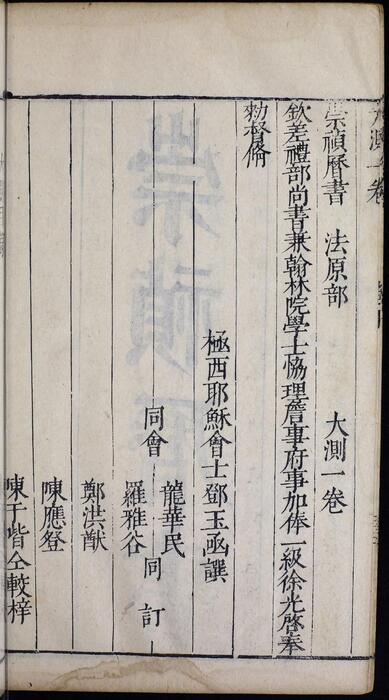 崇禎曆書　法原部　大測一卷
欽差禮部尚書兼翰林院學士恊理詹事府事加俸一級徐光啓奉
勑督脩
極西耶穌會士鄧玉函譔
同會　龍華民
羅雅谷　同訂
鄭洪猷
陳應登
陳于堦仝較梓